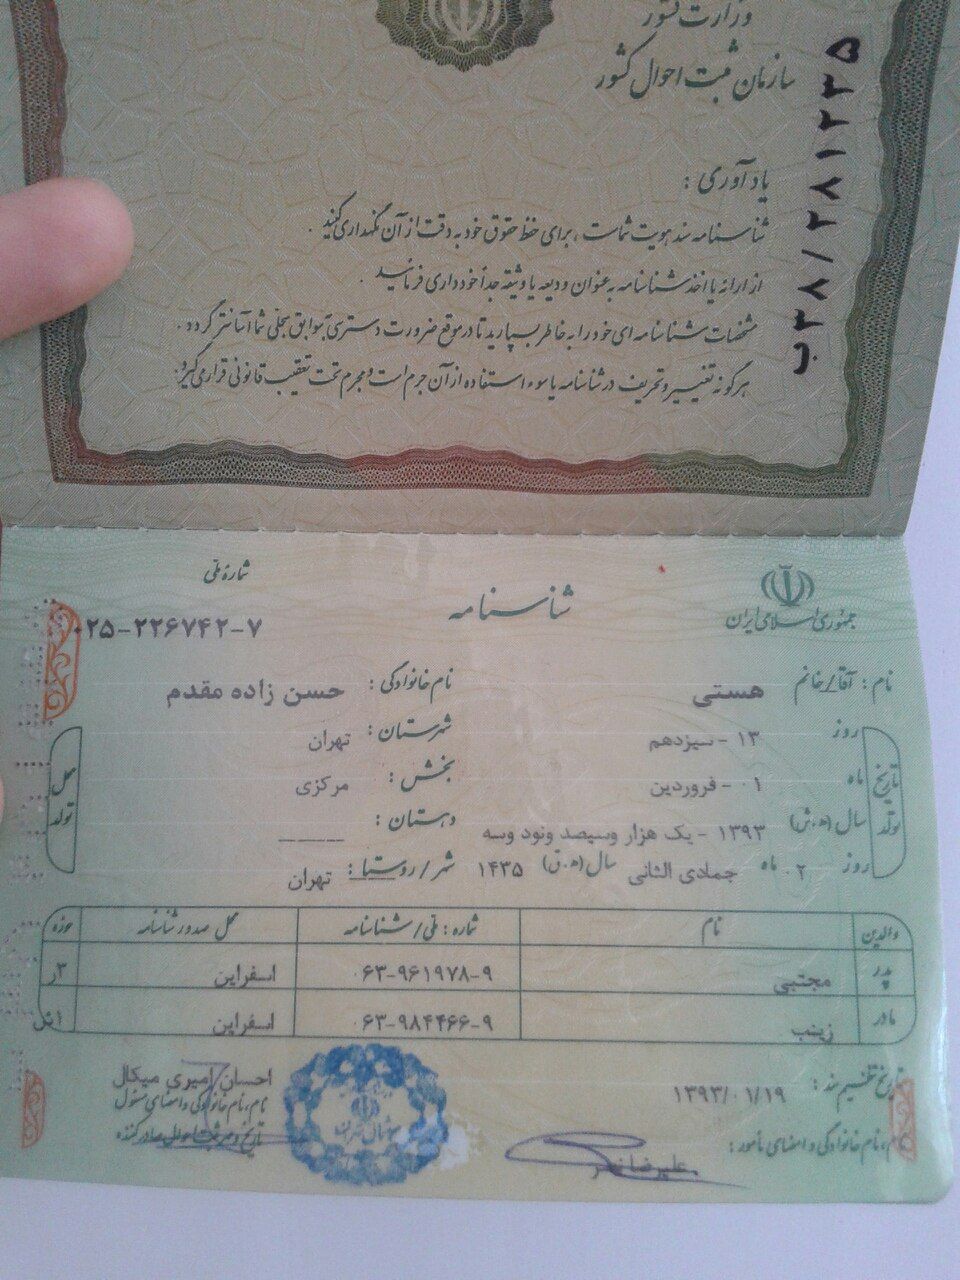 وزارت کشور
سازمان ثبت احوال کشور
ب۳۸/۲۸۱۲۳۵
یادآوری :
شناسنامه سند هویت شماست ، برای حفظ حقوق خود به دقت از آن نگهداری کنید .
از ارائه یا اخذ شناسنامه به عنوان ودیعه یا وثیقه جداً خودداری فرمائید .
مشخصات شناسنامه ای خود را به خاطر بسپارید تا در موقع ضرورت دسترسی به سوابق سجلی شما آسانتر گردد .
هرگونه تغییر و تحریف در شناسنامه یا سوء استفاده از آن جرم است و مجرم تحت تعقیب قانونی قرار می گیرد .
جمهوری اسلامی ایران
شناسنامه
شماره ملی
۰۲۵-۲۲۶۷۴۲-۷
نام : آقا/خانم هستی نام خانوادگی : حسن زاده مقدم
تاریخ تولد
روز ۱۳ - سیزدهم
ماه ۰۱ - فروردین
سال (ه.ش) ۱۳۹۳ - یک هزار وسیصد ونود وسه
روز ۰۲ ماه جمادی الثانی سال (ه.ق) ۱۴۳۵
محل تولد
شهرستان : تهران
بخش : مرکزی
دهستان : ـــــــ
شهر/روستا : تهران
والدین نام شماره : ملی/شناسنامه محل صدور شناسنامه حوزه
پدر مجتبی ۰۶۳-۹۶۱۹۷۸-۹ اسفراین ۳ر
مادر زینب ۰۶۳-۹۸۴۴۶۶-۹ اسفراین
تاریخ تنظیم سند : ۱۳۹۳/۰۱/۱۹
نام، نام خانوادگی و امضای مامور :
احسان امیری میکال
نام، نام خانوادگی و امضای مسئول
تاریخ و مهر ثبت احوال صادر کننده